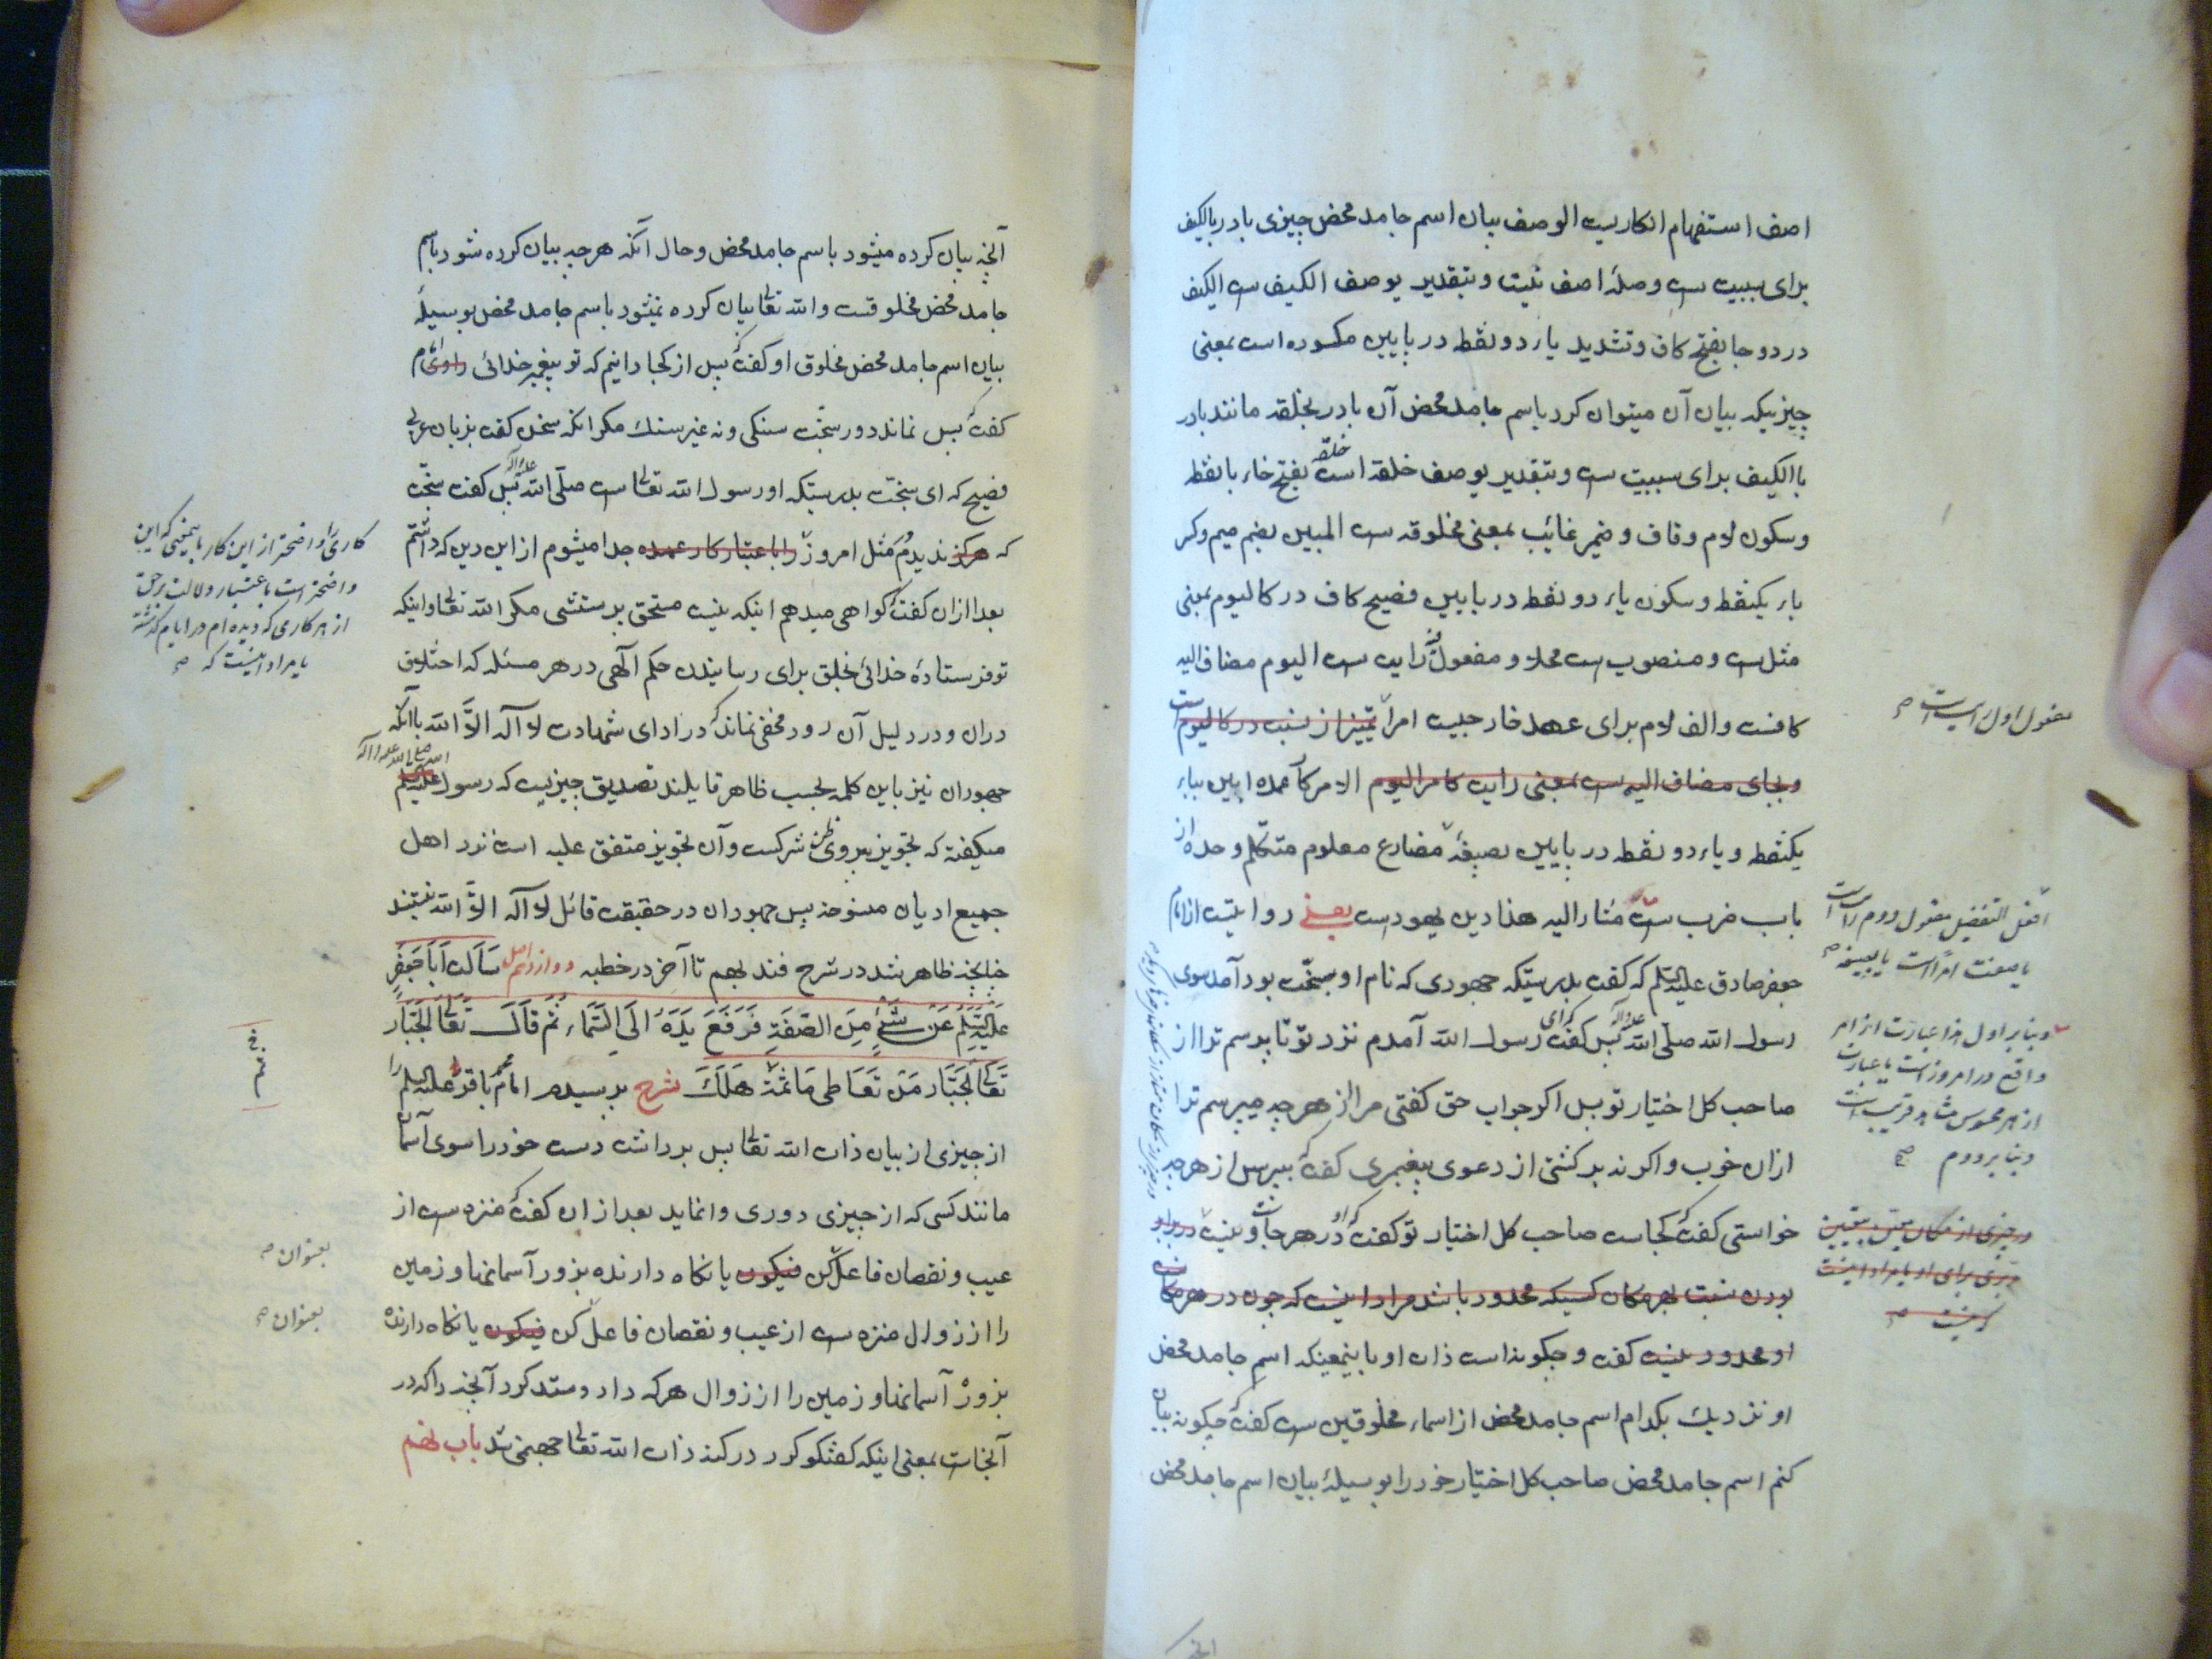 اصف استفهام انکاریست الوصف بیان اسم جامد محض چیزی بادر بالکیف
برای سببیت است و صلهٔ اصف نیست و بتقدیر بوصف الکیف است الکیف
در دو جا بفتح کاف و تشدید یاء دو نقطه در پایین مکسوره است بمعنی
چیزیکه بیان آن میتوان کرد باسم جامد محض آن بادر بخلقه مانند بادر
باالکیف برای سببیت است و بتقدیر بوصف خلقه است خلقه بفتح خاء بانقطه
و سکون لام و قاف و ضمیر غائب بمعنی مخلوقه است المبین بضم میم و کسر
باء یکنقطه و سکون یاء دو نقطه در پایین فصیح کاف در کالیوم بمعنی
مثل است و منصوب است محلا و مفعول رایت است الیوم مضاف الیه
کافست و الف لام برای عهد خارجیست امرا تمییز از نسبت در کالیوم است
و بجای مضاف الیه است بمعنی رایت کامر الیوم الامر کار عمده ابین بباء
یکنقطه و یاء دو نقطه در پایین بصیغهٔ مضارع معلوم متکلم وحده از
باب ضرب است مشار الیه هذا دین یهود است یعنی روایتست از امام
جعفر صادق علیه السلم که گفت بدرستیکه جهودی که نام او سبخت بود آمد سوی
رسول الله صلی الله علیه وآله پس گفت که ای رسول الله آمدم نزد تو تا بپرسم ترا از
صاحب کل اختیار تو پس اگر جواب حق گفتی مرا از هر چه میپرسم ترا
ازان خوب و اگر نه برگشتی از دعوی پیغمبری گفت که بپرس از هر چه
خواستی گفت که کجاست صاحب کل اختیار تو گفت که او در هر جاست و نیست در او
بودن نسبت بهر مکان کسیکه محدود باشد مراد اینست که چون در هر مکان
او محدود نیست گفت و چگونه است ذات او باینمعنیکه اسم جامد محض
او نزدیک بکدام اسم جامد محض از اسماء مخلوقین است گفت که چگونه بیان
کنم اسم جامد محض صاحب کل اختیار خود را بوسیلهٔ بیان اسم جامد محض
مفعول اول رایت است صح
افعل التفضیل مفعول دوم رایت است
یا صفت امرا است یا بصیغه صح
و بنا بر اول هذا عبارت از امر
واقع در امروز است یا عبارت
از هر محسوس مشاهد قریب است
و بنا بر دوم صح
آنچه بیان کرده میشود باسم جامد محض و حال آنکه هر چه بیان کرده شود باسم
جامد محض مخلوقست و الله تعالی بیان کرده نمیشود باسم جامد محض بوسیلهٔ
بیان اسم جامد محض مخلوق او گفت که پس از کجا دانیم که تو پیغمبر خدائی راوی امام
گفت که پس نماند دور سبخت سنگی و نه غیر سنگ مگر آنکه سخن گفت بزبان عربی
فصیح که ای سبخت بدرستیکه او رسول الله تعالی است صلی الله علیه وآله پس گفت سبخت
که هرگز ندیدم مثل امروز را باعتبار کار عمده جدا میشوم از این دین که داشتم
بعد ازان گفت که گواهی میدهم اینکه نیست مستحق پرستشی مگر الله تعالی و اینکه
تو فرستادهٔ خدائی بخلق برای رسانیدن حکم الهی در هر مسئله که احتلاف
دران و در دلیل آن رود مخفی نماند که در ادای شهادت لا اله الا الله باآنکه
جهودان نیز باین کلمه بحسب ظاهر قایلند تصدیق چیزیست که رسول الله صلی الله علیه وآله
میگفته که تجویز پیروی ظن شرکست و آن تجویز متفق علیه است نزد اهل
جمیع ادیان منسوخه پس جهودان در حقیقت قائل لا اله الا الله نیستند
چنانچه ظاهر شد در شرح فند بهم تا آخر در خطبه دوازدهم اصل سَاَلتُ اَبَا جَعفَرٍ
علیه السلم عَن شَیءٍ مِنَ الصِّفَةِ فَرَفَعَ یَدَهُ اِلَی السَّمَاءِ ثُمَّ قَالَ تَعَالَی الجَبَّار
تَعَالَی الجَبَّار مَن تَعَاطی مَا ثَمَّةَ هَلَکَ شرح پرسیدم امام محمد باقر علیه السلم را
از چیزی از بیان ذات الله تعالی پس برداشت دست خود را سوی آسمان
مانند کسی که از چیزی دوری وانماید بعد ازان گفت که منزه است از
عیب و نقصان فاعل کن فیکون یا نگاه دارنده بزور آسمانها و زمین
را از زوال منزه است از عیب و نقصان فاعل کن فیکون یا نگاه دارنده
بزور آسمانها و زمین را از زوال هر که داد و ستد کرد آنچه را که در
آنجاست بمعنی اینکه گفتگو کرد در کنه ذات الله تعالی جهنمی شد باب نهم
کاری را واضحتر از این کار باینمعنی که این
واضحتر است باعتبار دلالت بر حق
از هر کاری که دیده ام در ایام گذشته
یا مراد اینست که صح
بعنوان صح
بعنوان صح